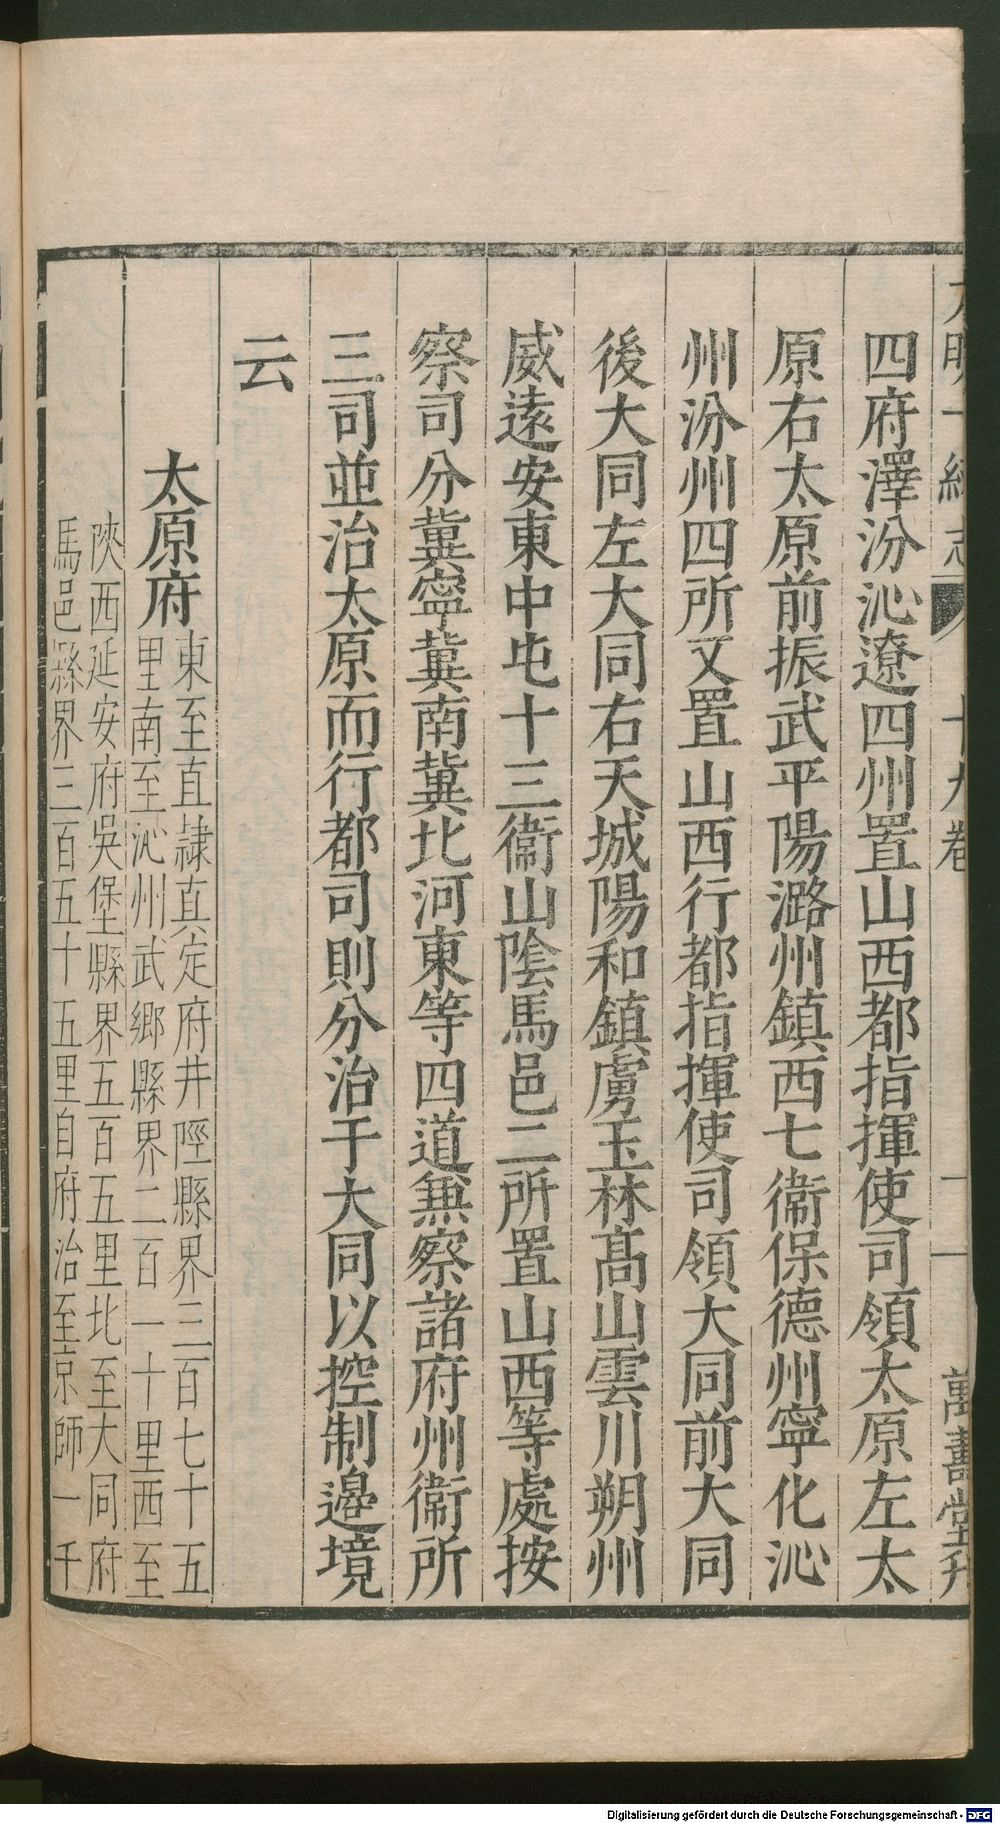 大明一統志 十九卷 二 萬壽堂刊
四府澤汾沁遼四州置山西都指揮使司領太原左太
原右太原前振武平陽潞州鎮西七衞保德州寧化沁
州汾州四所又置山西行都指揮使司領大同前大同
後大同左大同右天城陽和鎮虜玉林髙山雲川朔州
威遠安東中屯十三衞山陰馬邑二所置山西等處按
察司分冀寧冀南冀北河東等四道兼察諸府州衞所
三司並治太原而行都司則分治于大同以控制邊境
云
太原府
東至直隷真定府井陘縣界三百七十五
里南至沁州武鄉縣界二百一十里西至
陝西延安府吳堡縣界五百五里北至大同府
馬邑縣界三百五十五里自府治至京師一千
Digitalisierung gefördert durch die Deutsche Forschungsgemeinschaft - DFG